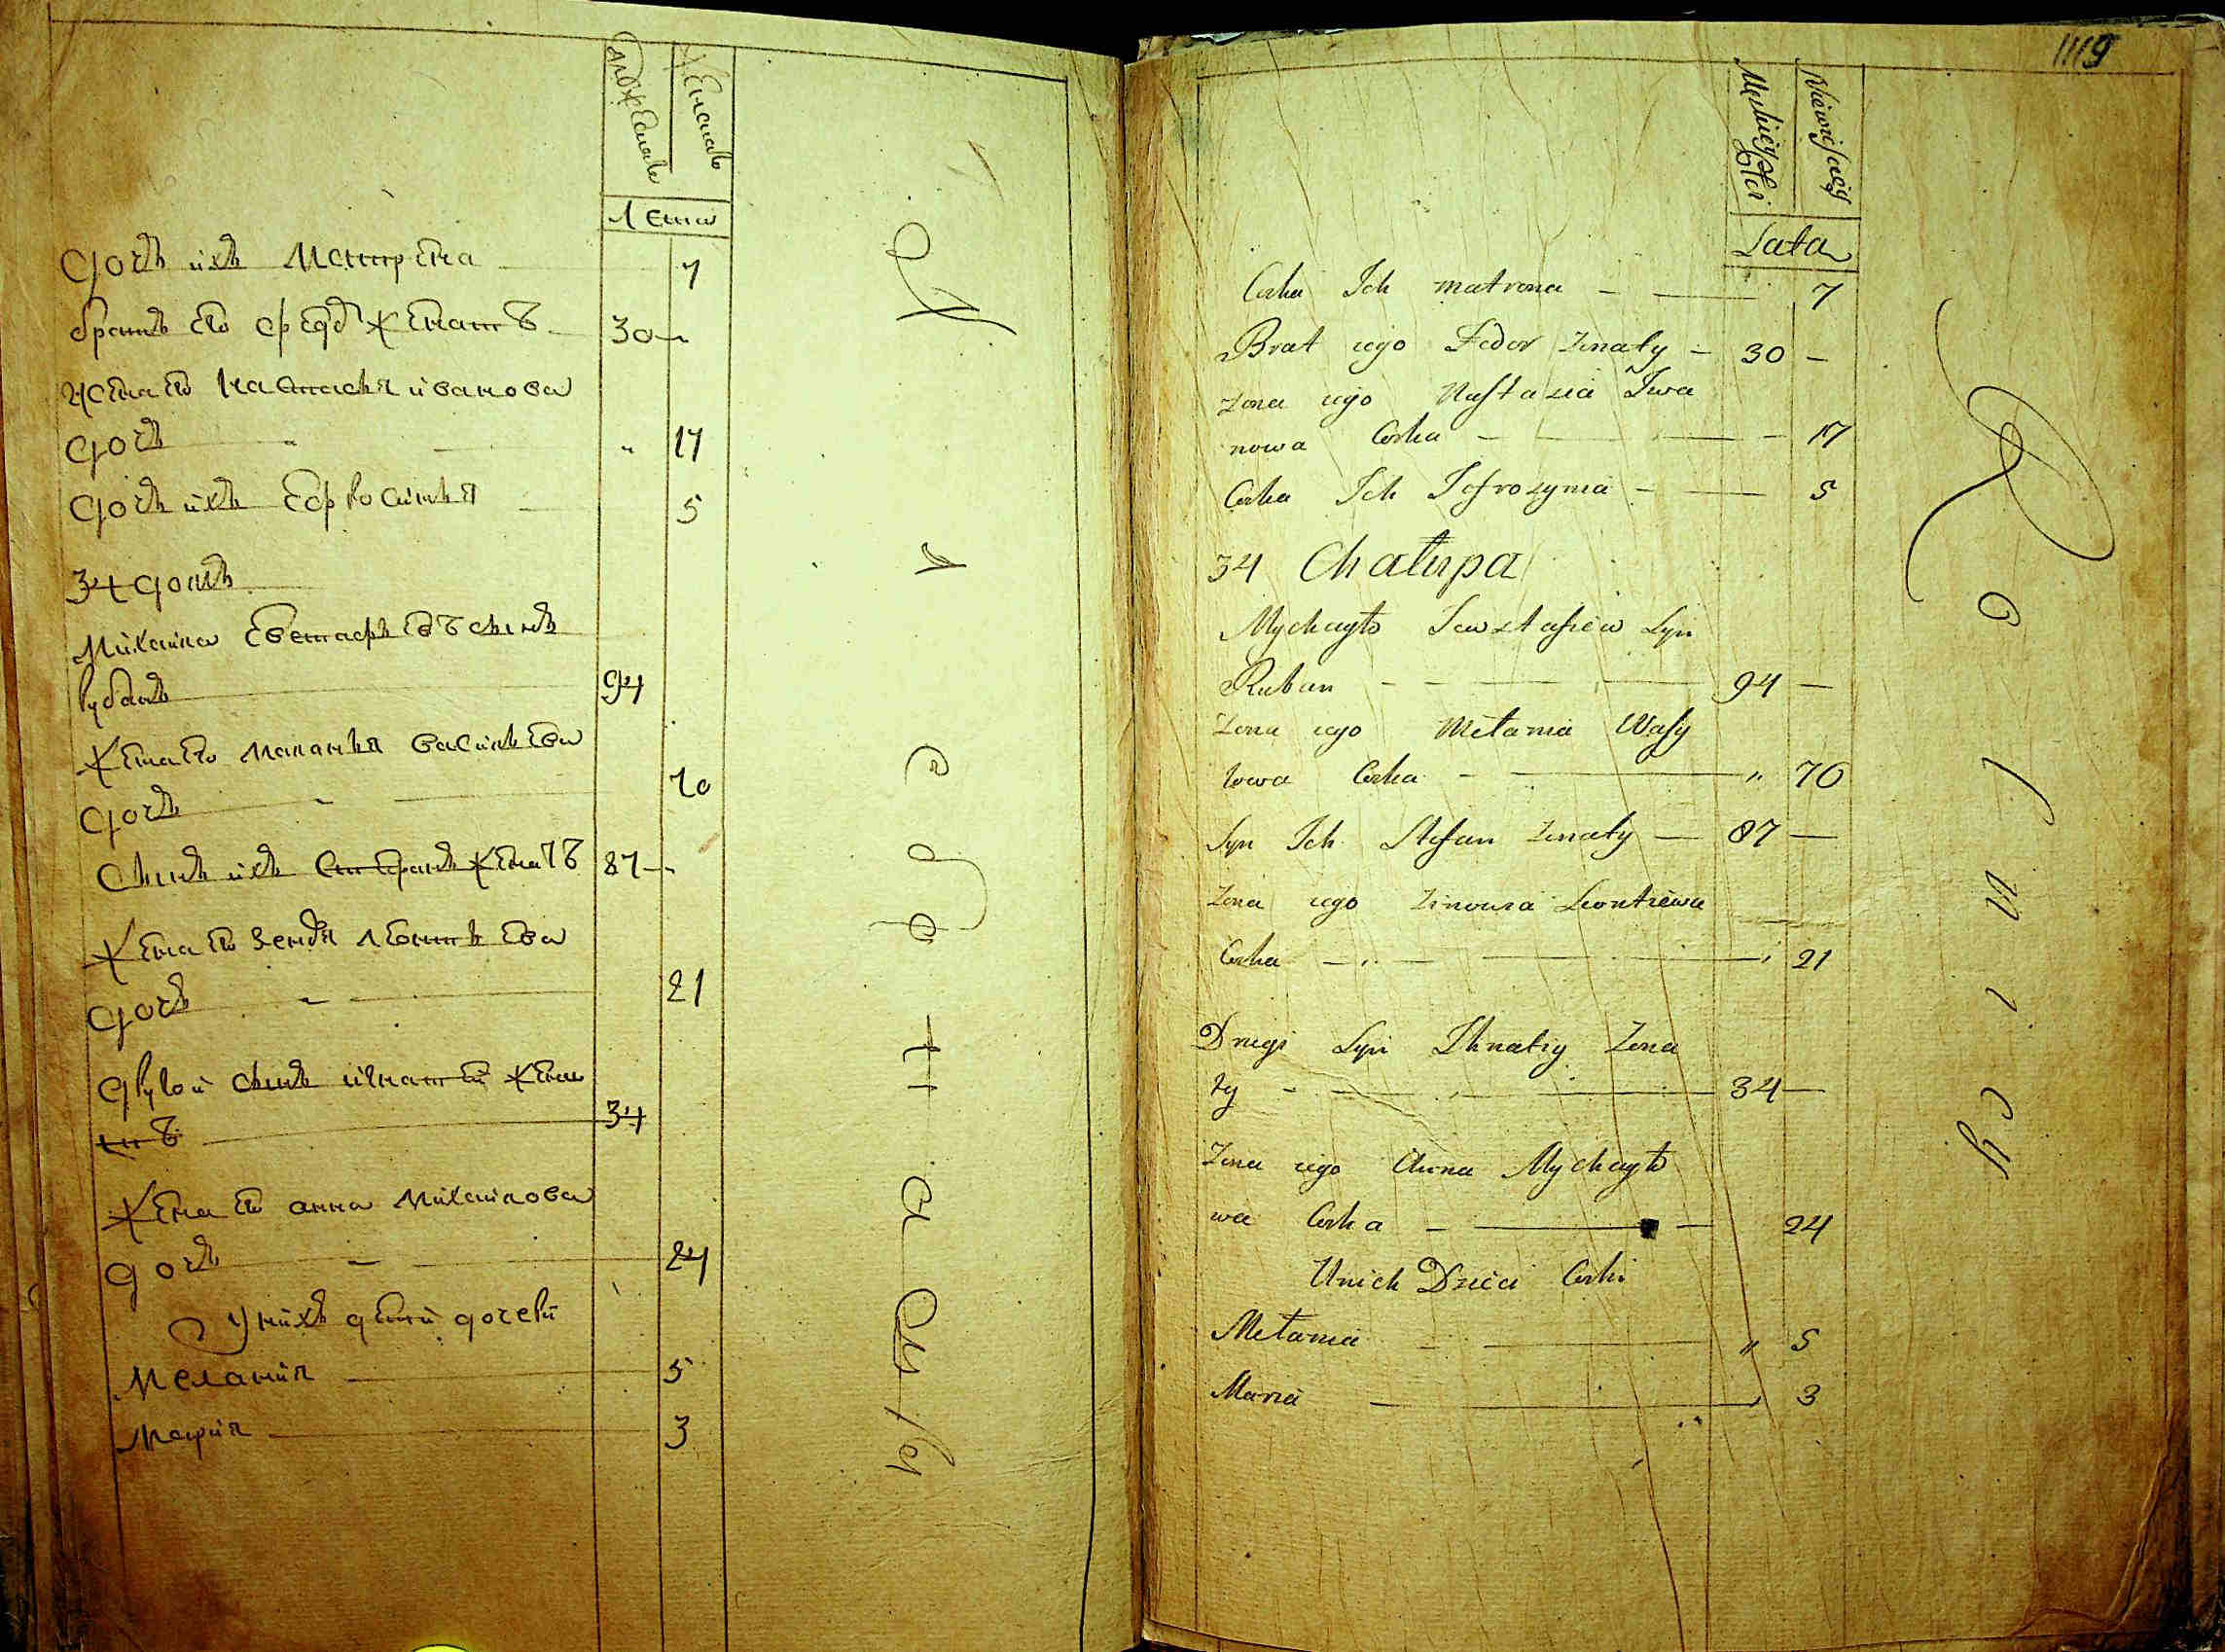 мужеска
женска
Лета
Дочь ихъ Матрена 7
братъ его Федоръ женатъ 30
жена его Настасья иванова
дочь 17
Дочь ихъ Ефросинья 5
34 домъ
Михаила Евстафьевъ сынъ
рубанъ 94
жена его Маланья васильева
дочь 70
Сынъ ихъ Степанъ женатъ 87
жена его Зенов'я левонтьева
дочь 21
другой сынъ игнатей жена
тъ 34
жена его анна Михаилова
дочь 24
У нихъ дети дочери
Мелания 5
Мария 3
1119
Męskiey Płci
Niewiesciey
Lata
Corka Ich matrona 7
Brat iego Fedor Zonaty 30
Zona iego Nastazia Iwa
nowa Corka 17
Corka Ich Jefrozynia 5
34 Chałupa
Mychayło Jewstafiew Syn
Ruban 94
Zona iego Mełania Wasy
lowa Corka 70
Syn Ich Stefan Zonaty 87
Zona iego Zinowia Leontiewa
Corka 21
Drugi Syn Ihnatiy Zona
ty 34
Zona iego Anna Mychayło
wa Corka 24
U nich Dzieci Corki
Mełania 5
Maria 3
R o l n i c y